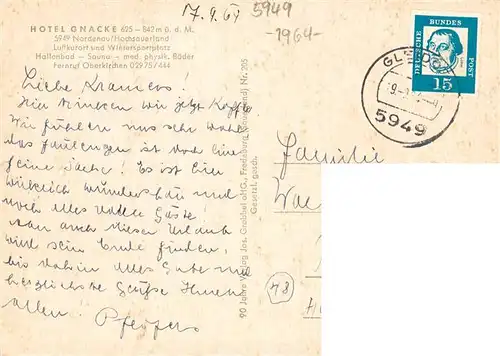 17.9.64
5949
-1964-
HOTEL GNACKE 625 – 842 m ü. d. M.
5949 Nordenau/Hochsauerland
Luftkurort und Wintersportplatz
Hallenbad – Sauna – med. physik. Bäder
Fernruf Oberkirchen 02975/444
Liebe Kramers!
Hier trinken wir jetzt Kaffee
Wir fühlen uns sehr wohl
das faulenzen ist doch eine
feine Sache! Es ist hier
wirklich wunderschön und
noch alles voller Gäste
wann auch dieser Urlaub
wird sein Ende finden,
bis dahin alles Gute und
herzlichste Grüße Ihnen
allen!
90 Jahre Verlag Jos. Grobbel oHG., Fredeburg (Sauerland) Nr. 205
Gesetzl. gesch.
DEUTSCHE BUNDES POST
15
5949
Familie
78